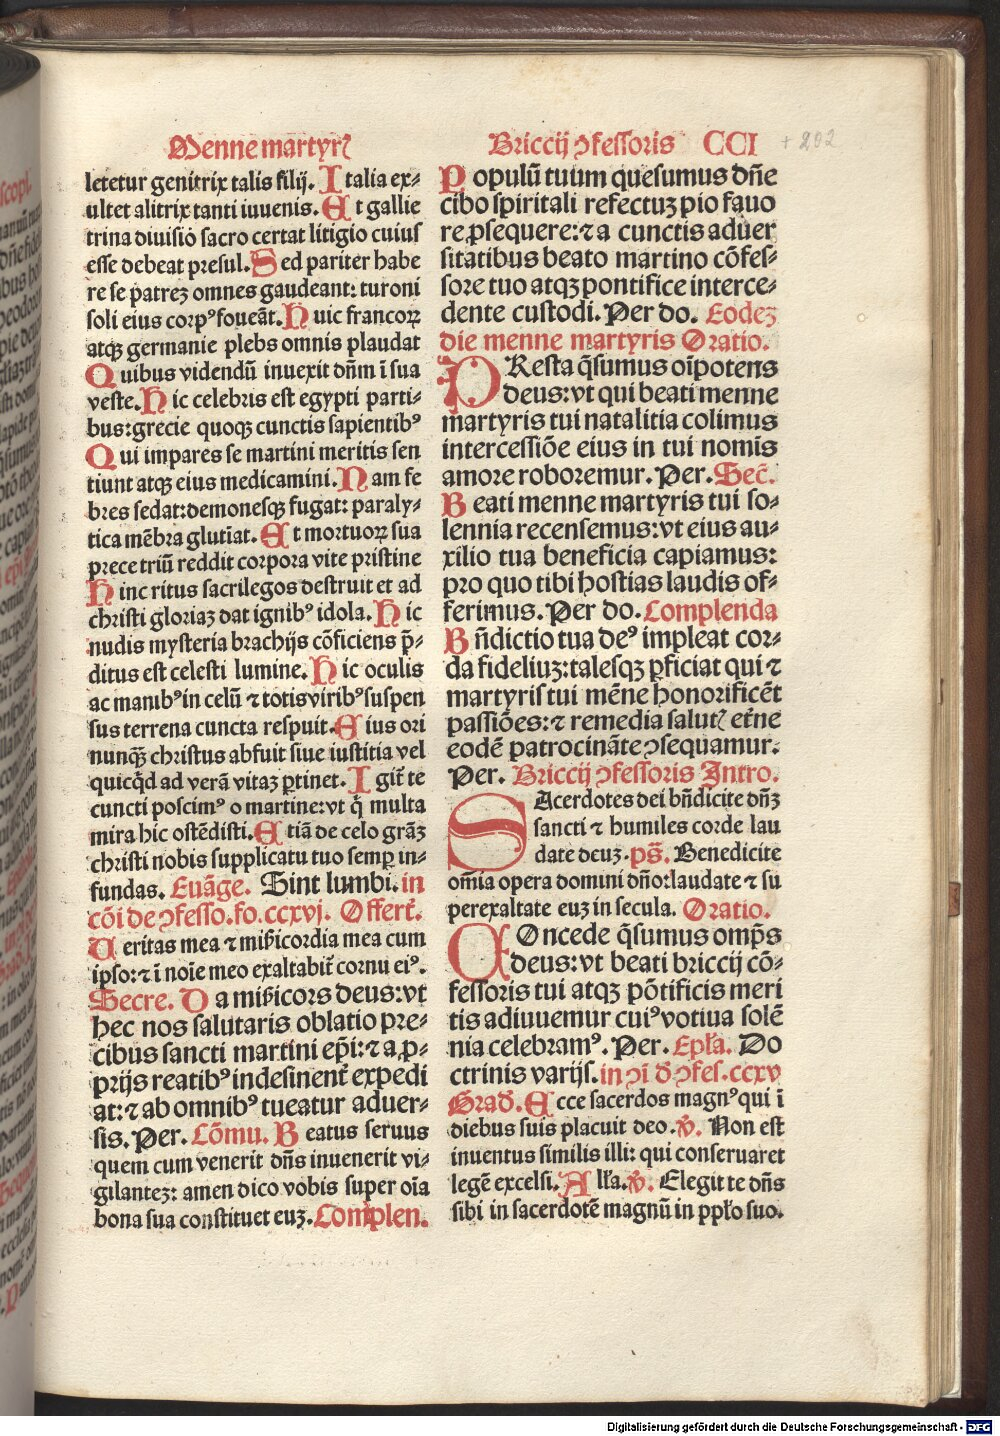 Menne martyrꝭ
letetur genitrix talis filij. Italia ex⸗
ultet alitrix tanti iuuenis. Et gallie
trina diuisio sacro certat litigio cuius
esse debeat presul. Sed pariter habe
re se patreꝫ omnes gaudeant: turoni
soli eius corpꝰ foueāt. Huic francoꝝ
atqꝫ germanie plebs omnis plaudat
Quibus videndū inuexit dn̄m ī sua
veste. Hic celebris est egypti parti⸗
bus: grecie quoqꝫ cunctis sapientibꝰ
Qui impares se martini meritis sen
tiunt atqꝫ eius medicamini. Nam fe
bres sedat: demonesqꝫ fugat: paraly⸗
tica mēbra glutīat. Et mortuoꝝ sua
prece triū reddit corpora vite pristine
Hinc ritus sacrilegos destruit et ad
christi gloriaꝫ dat ignibꝰ idola. Hic
nudis mysteria brachijs cōficiens p̄⸗
ditus est celesti lumine. Hic oculis
ac manibꝰ in celū ⁊ totis viribꝰ suspen
sus terrena cuncta respuit. Eius ori
nunqꝫ christus abfuit siue iustitia vel
quicq̇d ad verā vitaꝫ ꝑtinet. Igit̄ te
cuncti poscimꝰ o martine: vt q̇ multa
mira hic ostēdisti. Etiā de celo grāꝫ
christi nobis supplicatu tuo semꝑ in⸗
fundas. Euāge. Sint lumbi. in
cōi de ꝯfesso. fo. ccxvj. Offert̄.
Ueritas mea ⁊ mi̅sericordia mea cum
ipso: ⁊ ī noīe meo exaltabit̄ cornu eiꝰ.
Secre. Da mi̅sericors deus: vt
hec nos salutaris oblatio pre⸗
cibus sancti martini ep̄i: ⁊ a ꝓ⸗
prijs reatibꝰ indesinent̄ expedi
at: ⁊ ab omnibꝰ tueatur aduer⸗
sis. Per. Cōmu. Beatus seruus
quem cum venerit dn̄s inuenerit vi⸗
gilanteꝫ: amen dico vobis super oīa
bona sua constituet euꝫ. Complen.
Briccij ꝯfessoris CCI
+ 202
Populū tuum quesumus dn̄e
cibo spiritali refectuꝫ pio fauo
re ꝓsequere: ⁊ a cunctis aduer
sitatibus beato martino cōfes⸗
sore tuo atqꝫ pontifice interce⸗
dente custodi. Per do. Eodeꝫ
die menne martyris Oratio.
PResta q̄sumus oīpotens
deus: vt qui beati menne
martyris tui natalitia colimus
intercessiōe eius in tui nomīs
amore roboremur. Per. Sec̄.
Beati menne martyris tui so⸗
lennia recensemus: vt eius au⸗
xilio tua beneficia capiamus:
pro quo tibi hostias laudis of⸗
ferimus. Per do. Complenda
Bn̄dictio tua deꝰ impleat cor⸗
da fideliuꝫ: talesqꝫ ꝑficiat qui ⁊
martyris tui mēne honorificēt
passiōes: ⁊ remedia salutꝭ et̄ne
eodē patrocināte ꝯsequamur.
Per. Briccij ꝯfessoris Intro.
SAcerdotes dei bn̄dicite dn̄ꝫ
sancti ⁊ humiles corde lau
date deuꝫ. ps̄. Benedicite
om̄ia opera domini dn̄o: laudate ⁊ su
perexaltate euꝫ in secula. Oratio.
COncede q̄sumus omp̄s
deus: vt beati briccij cō⸗
fessoris tui atqꝫ pōtificis meri
tis adiuuemur cuiꝰ votiua solē
nia celebramꝰ. Per. Epl̄a. Do
ctrinis varijs. in ꝯi d̄ ꝯfes. ccxv
Grad̄. Ecce sacerdos magnꝰ qui ī
diebus suis placuit deo. ℣. Non est
inuentus similis illi: qui conseruaret
legē excelsi. All̄a. ℣. Elegit te dn̄s
sibi in sacerdotē magnū in ppl̄o suo.
Digitalisierung gefördert durch die Deutsche Forschungsgemeinschaft - DFG